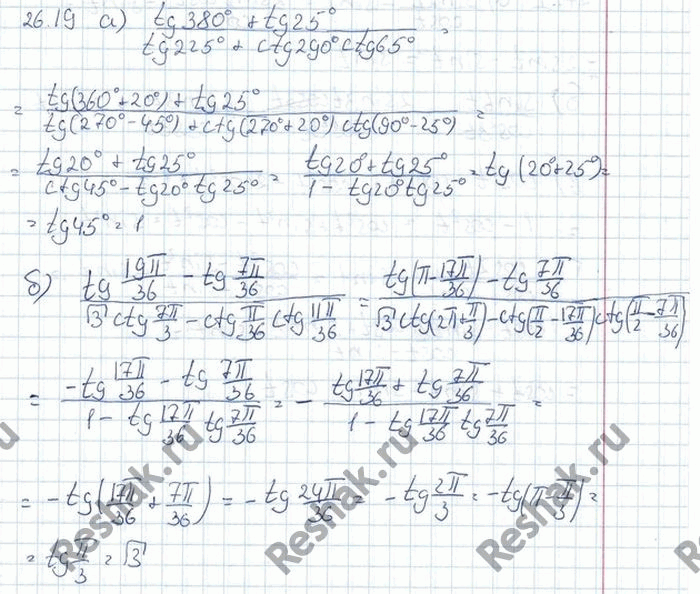 26.19 а) (tg380° + tg25°)/(tg225° + ctg290° ctg65°) =
= (tg(360°+20°) + tg25°)/(tg(270°-45°) + ctg(270°+20°) ctg(90°-25°)) =
= (tg20° + tg25°)/(ctg45° - tg20° tg25°) = (tg20° + tg25°)/(1 - tg20° tg25°) = tg(20°+25°) =
= tg45° = 1
б) (tg 19π/36 - tg 7π/36)/(√3 ctg 7π/3 - ctg π/36 ctg 11π/36) = (tg(π - 17π/36) - tg 7π/36)/(√3 ctg(2π + π/3) - ctg(π/2 - 17π/36) ctg(π/2 - 7π/36))
= (-tg 17π/36 - tg 7π/36)/(1 - tg 17π/36 tg 7π/36) = - (tg 17π/36 + tg 7π/36)/(1 - tg 17π/36 tg 7π/36) =
= -tg(17π/36 + 7π/36) = -tg 24π/36 = -tg 2π/3 = -tg(π - π/3) =
= tg π/3 = √3
Reshak.ru
Reshak.ru
Reshak.ru